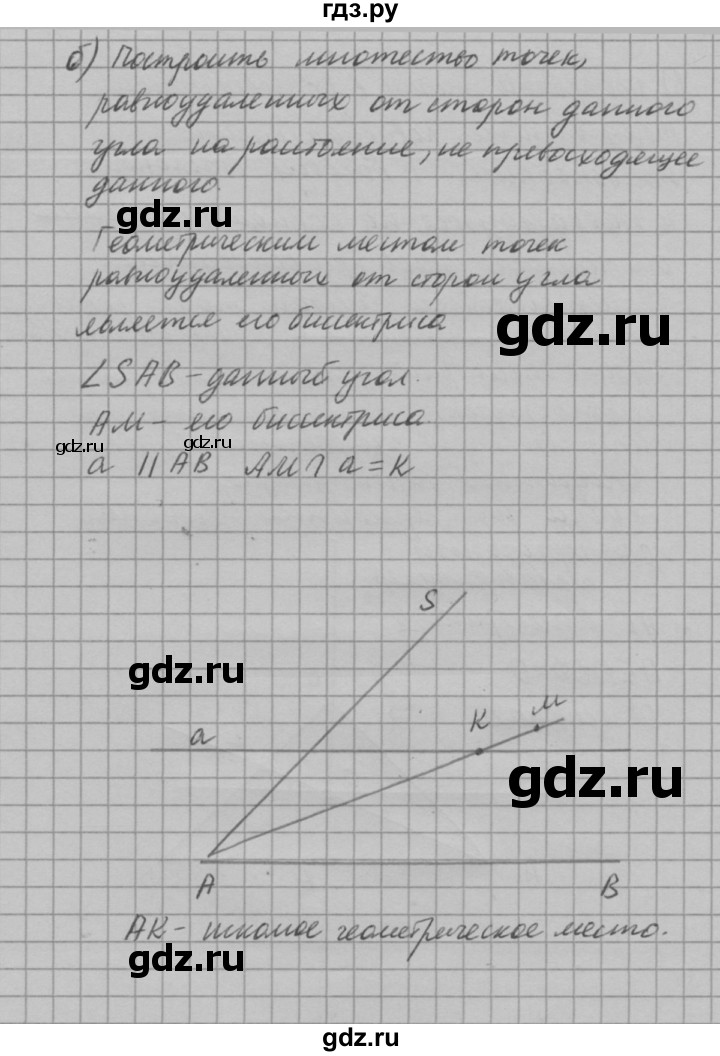 гдз.ру
б) Построить множество точек,
равноудаленных от сторон данного
угла на расстояние, не превосходящее
данного.
gdz.ru
Геометрическим местом точек
равноудаленных от сторон угла
является его биссектриса
gdz.ru
∠SAB - данный угол.
AM - его биссектриса.
gdz.ru gdz.ru
a || AB AM ∩ a = K
S
gdz.ru
a
K
M
gdz.ru
A
B
AK - искомое геометрическое место.
gdz.ru
gdz.ru